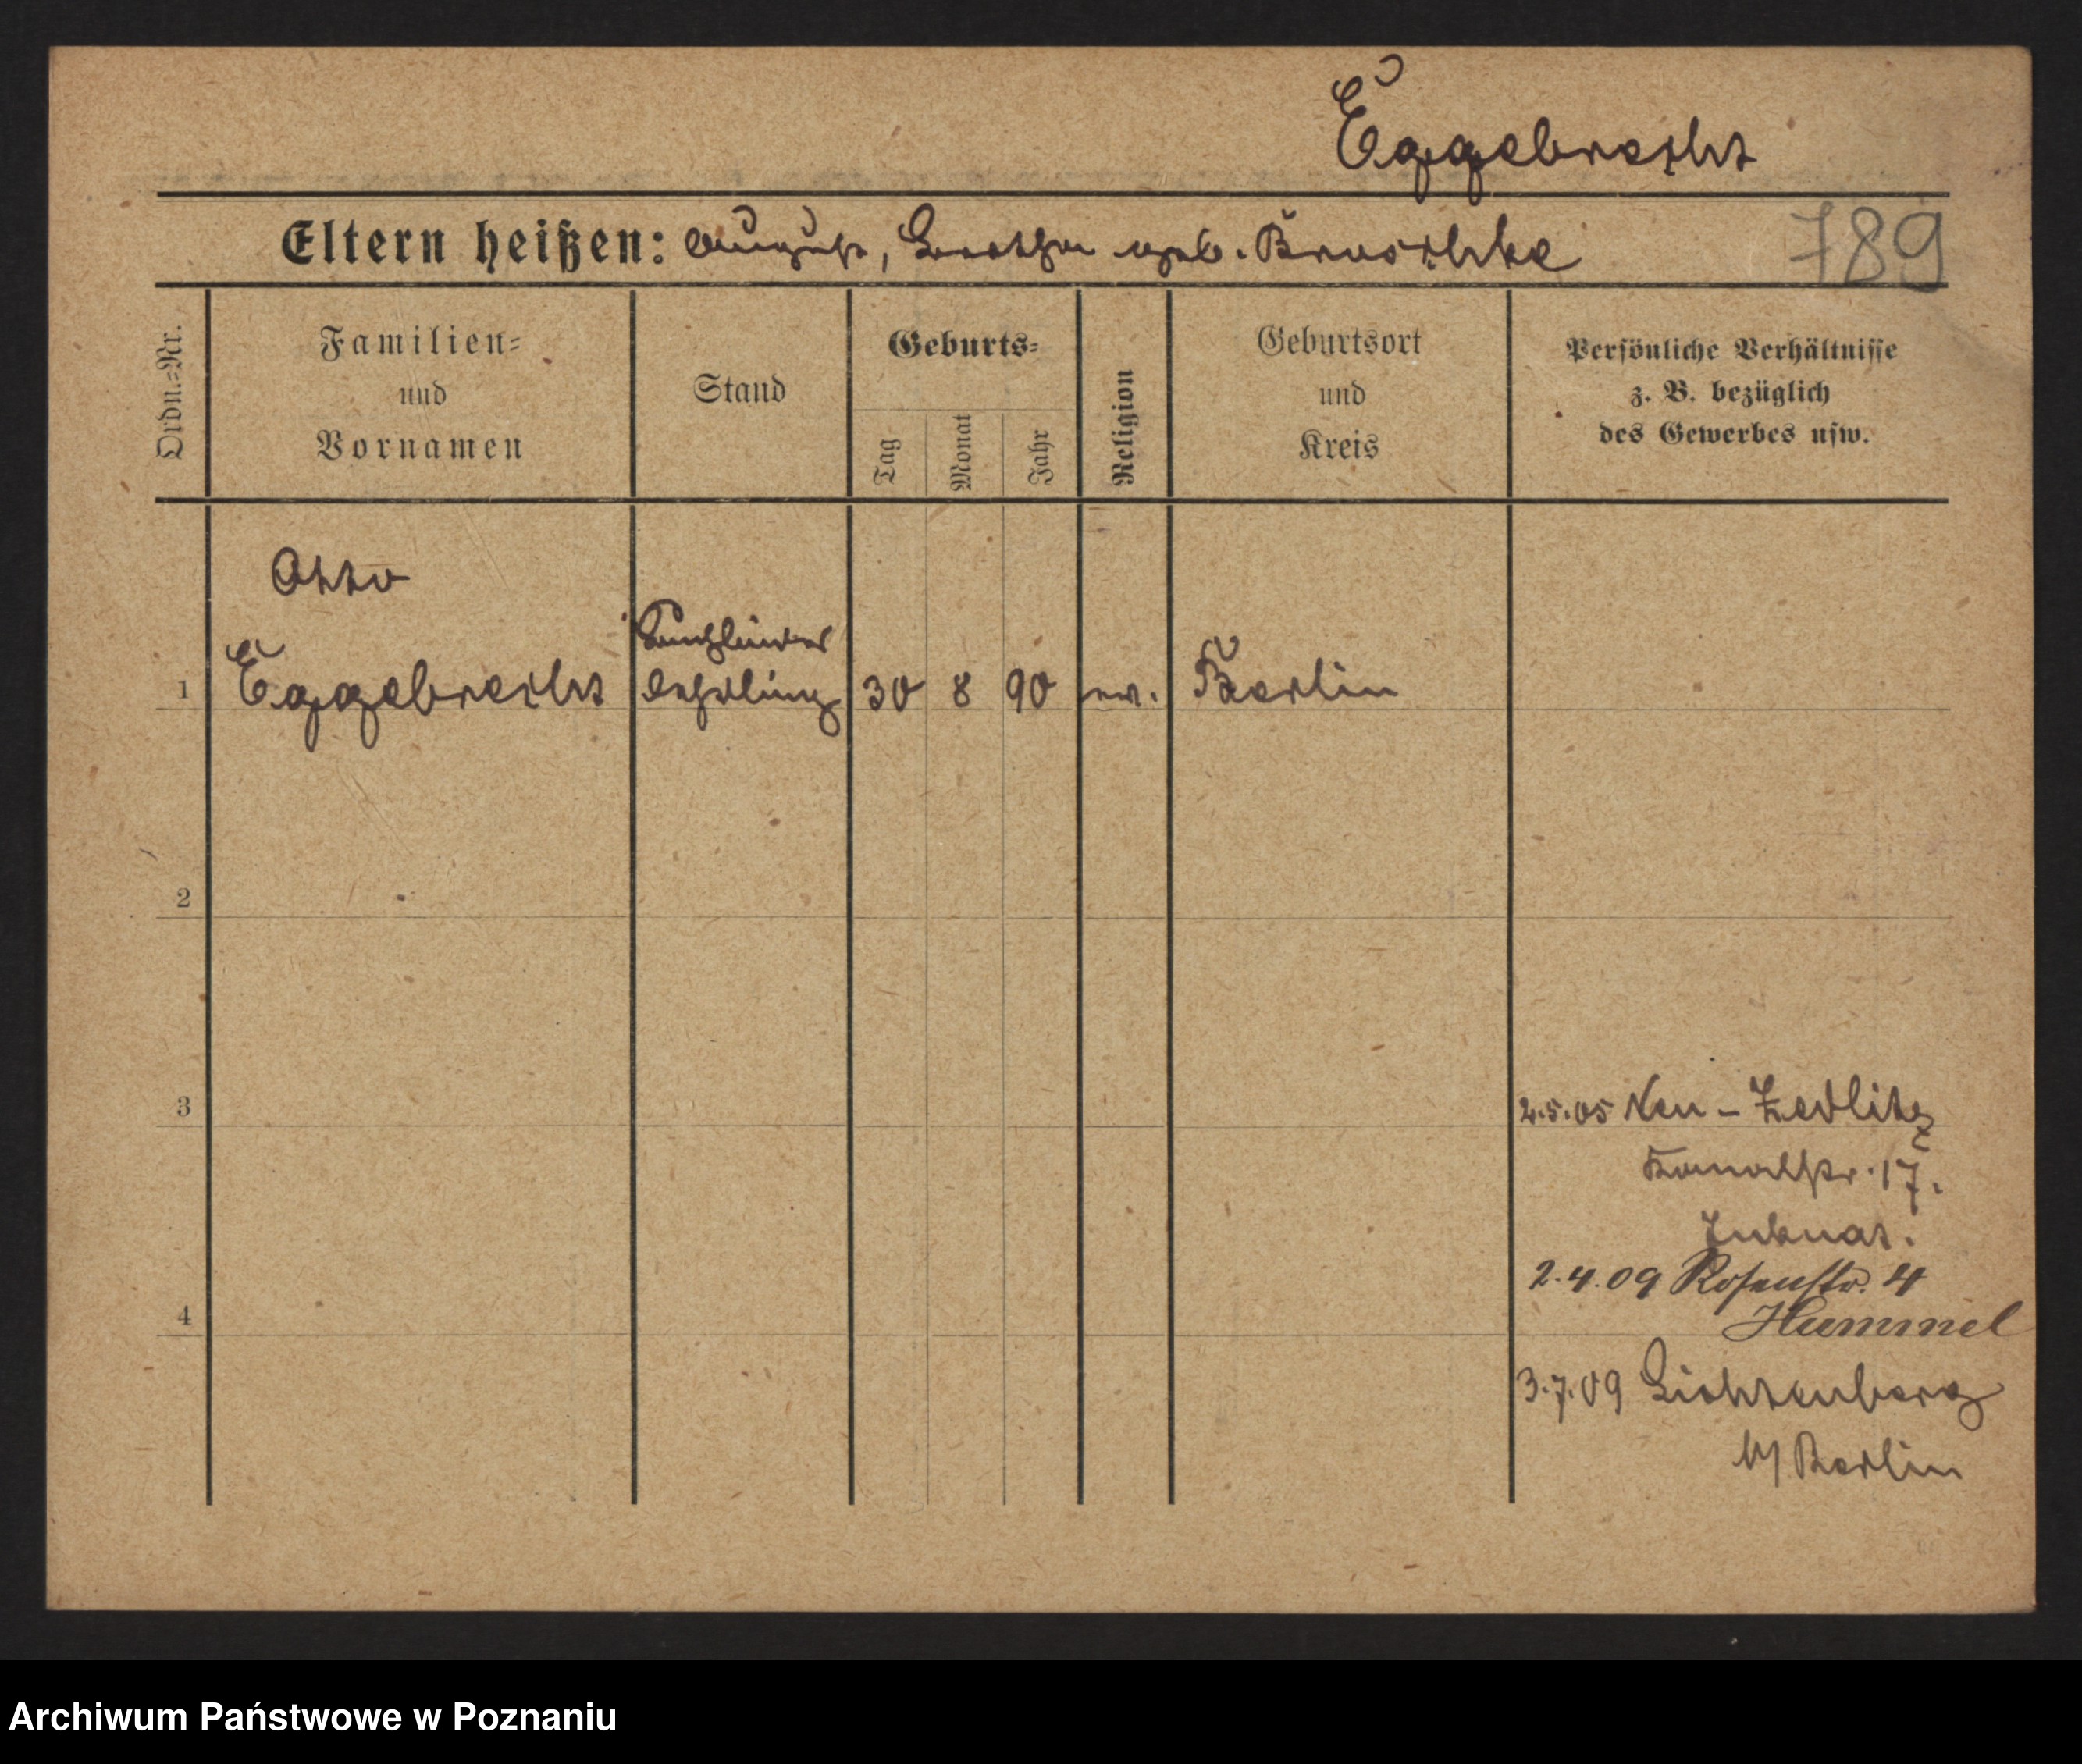 Eggebrecht
Eltern heißen: August, Bertha geb. Braschke
789
Ordn.-Nr.
Familien-
und
Vornamen
Stand
Geburts-
Tag
Monat
Jahr
Religion
Geburtsort
und
Kreis
Persönliche Verhältnisse
z. B. bezüglich
des Gewerbes usw.
Otto
Buchbinder
1 Eggebrecht Lehrling 30 8 90 ev. Berlin
2
3
2.5.05 Neu-Zedlitz
Kanalstr. 17.
2.4.09 Rosenstr. 4
4
Hummel
3.7.09 Lichtenberg
b/Berlin
Archiwum Państwowe w Poznaniu